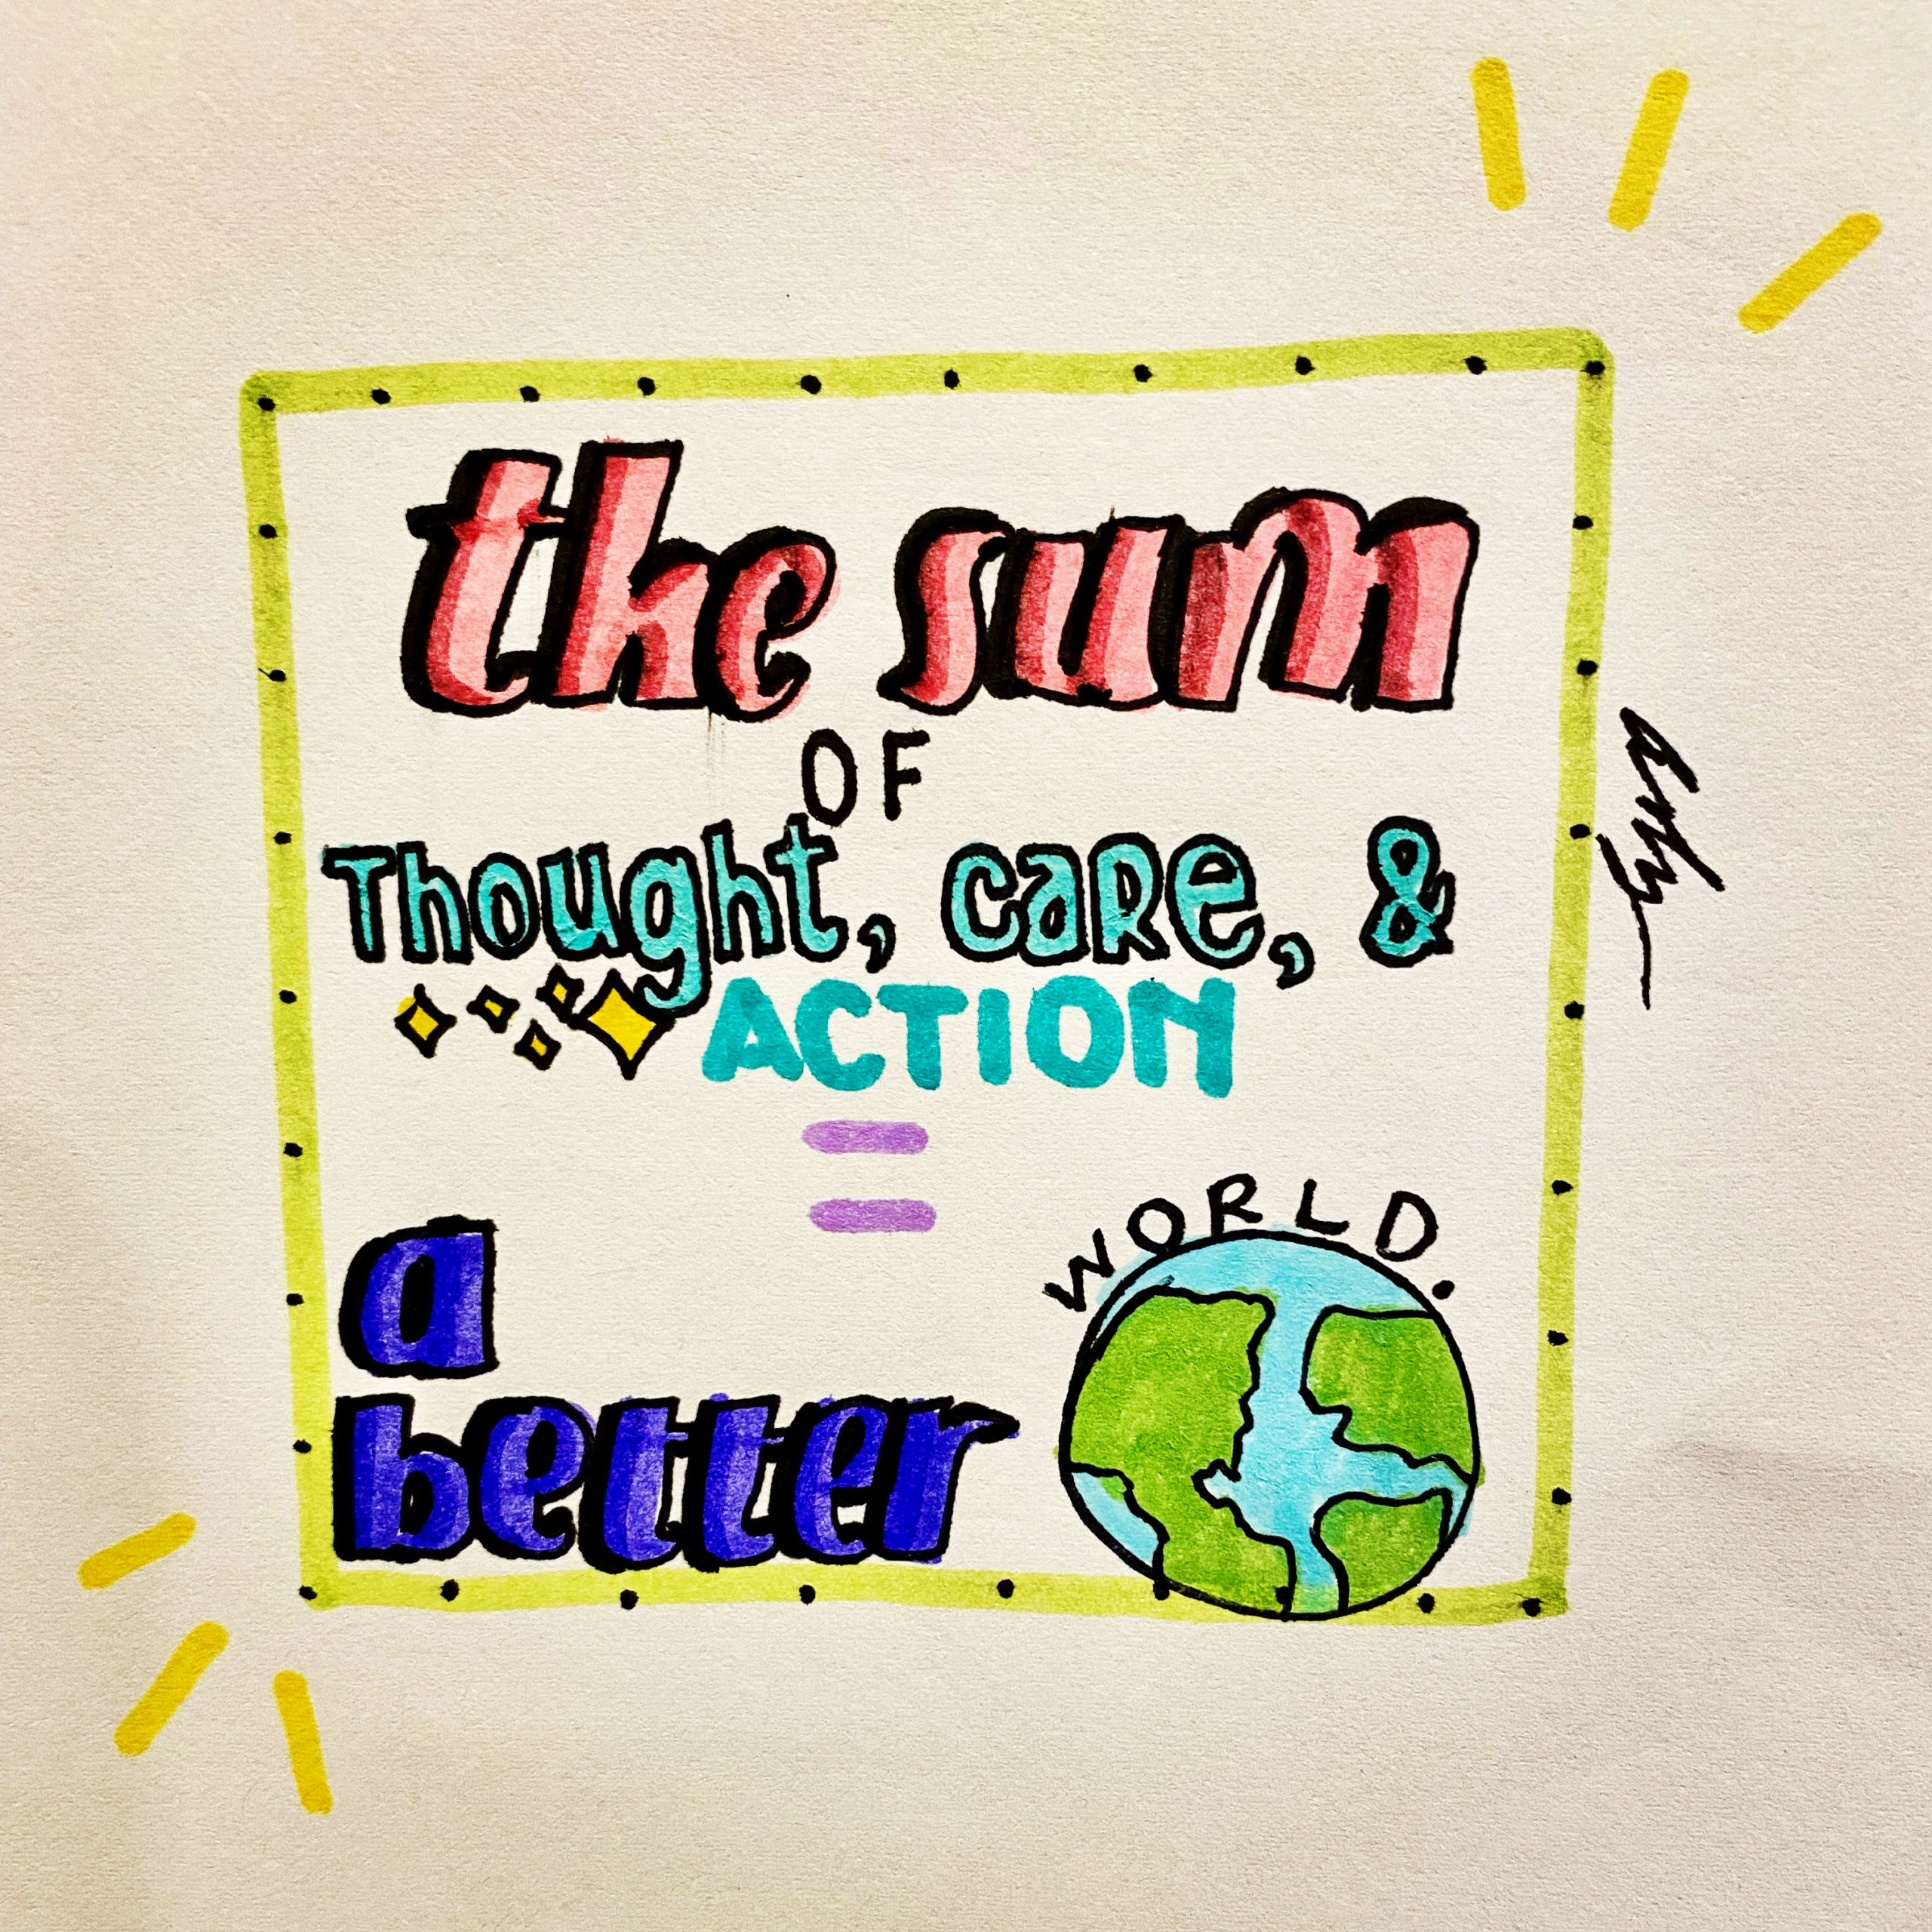 the sum
OF
Thought, care, &
ACTION
=
a
WORLD.
better